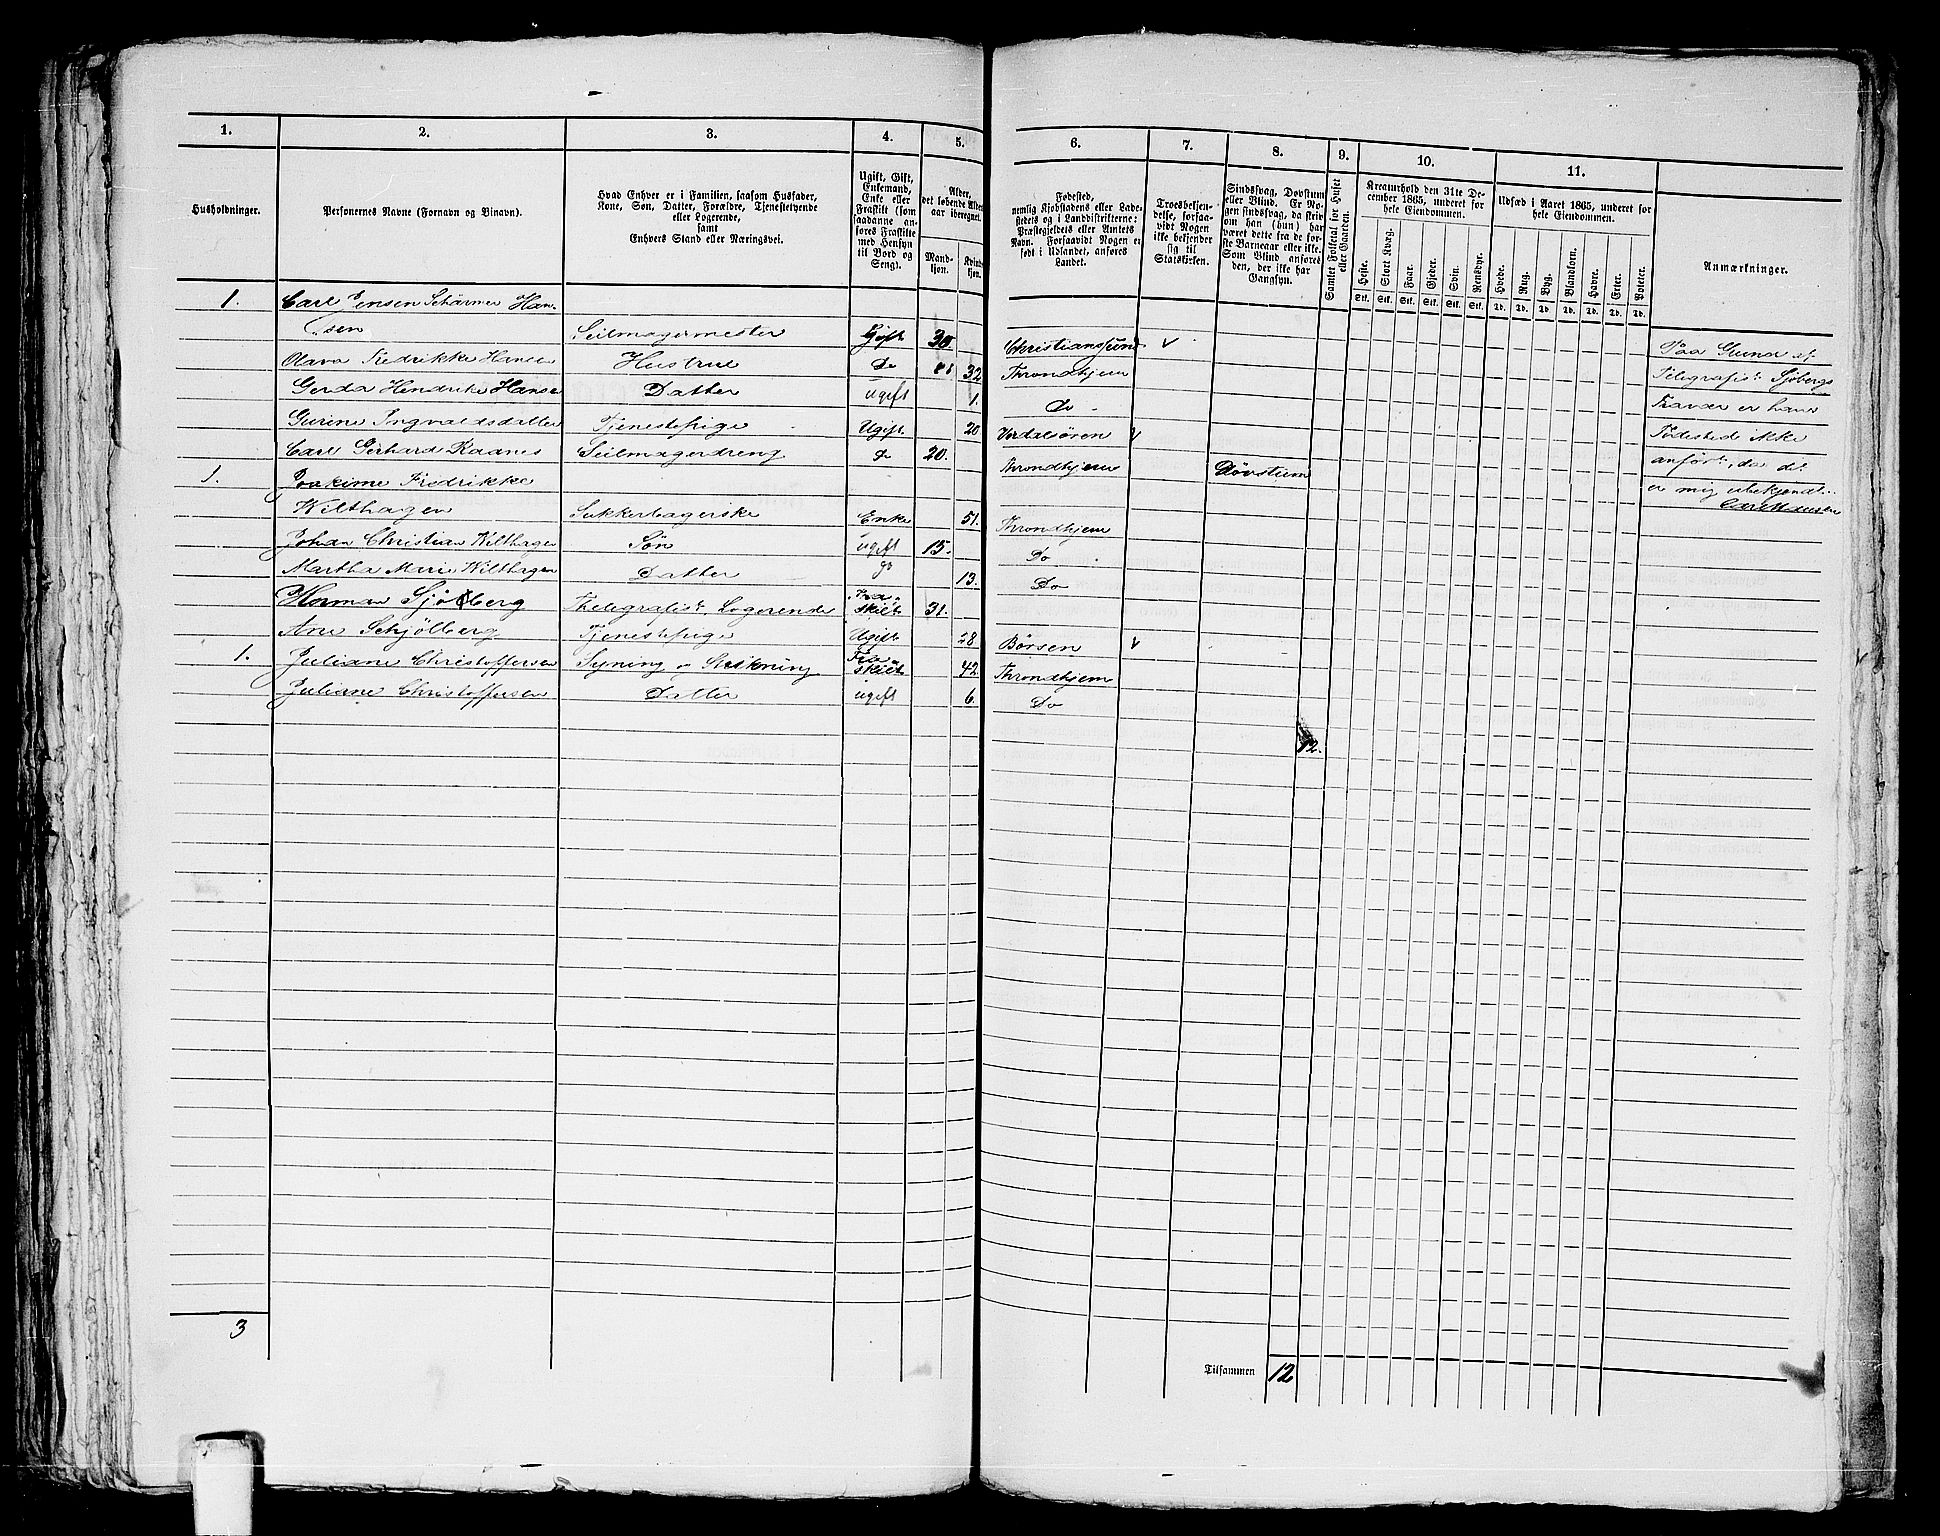 1. 2. 3. 4. 5. 6. 7. 8. 9. 10. 11.
Husholdninger.
Personernes Navne (Fornavn og Binavn).
Hvad Enhver er i Familien, saasom Husfader,
Kone, Søn, Datter, Forældre, Tjenestetyende
eller Logerende,
samt
Enhvers Stand eller Næringsvei.
Ugift, Gift,
Enkemand,
Enke eller
Fraskilt (som
saadanne an-
føres Fraskilte
med Hensyn
til Bord og
Seng).
Alder,
det løbende Alders-
aar iberegnet.
Mand-
kjøn.
Kvinde-
kjøn.
Fødested,
nemlig Kjøbstadens eller Lade-
stedets og i Landdistrikterne:
Præstegjeldets eller Amtets
Navn. Forsaavidt Nogen er
født i Udlandet, anføres
Landet.
Troesbekjen-
delse, forsaa-
vidt Nogen
ikke bekjender
sig til
Statskirken.
Sindssvag, Døvstum
eller Blind. Er No-
gen sindssvag, da skriv
om han (hun) har
været dette fra de før-
ste Barneaar eller ikke.
Som Blind anføres
den, der ikke har
Gangsyn.
Samlet Folketal for Huset
eller Gaarden.
Kreaturhold den 31te De-
cember 1865, underet for
hele Eiendommen.
Heste. Stort Kvæg. Faar. Gjeder. Svin. Rensdyr.
Stk. Stk. Stk. Stk. Stk. Stk.
Udsæd i Aaret 1865, underet for
hele Eiendommen.
Hvede. Rug. Byg. Blandkorn. Havre. Erter. Poteter.
Td. Td. Td. Td. Td. Td. Td.
Anmærkninger.
1. Carl Jensen Schärmer Han-
sen Seilmagermester Gift 30 Christianssund v
Olava Fredrikke Hansen Hustrue Do 32 Throndhjem
Gerda Hendrike Hansen Datter ugift 1. Do
Gurine Ingvaldsdatter Tjenestepige Ugift 20 Verdalsören v
Carl Gerhard Raanes Seilmagerdreng Do 20. Throndhjem Døvstum
1. Joakime Fredrikke
Wilthagen Sukkerbagerske Enke 51. Throndhjem
Johan Christian Wilthagen Søn ugift 15. Do
Martha Marie Wilthagen Datter do 13. Do
Herman Sjöberg Thelegrafist, Logerende Fra-
skilt 31.
Ane Schjölberg Tjenestepige Ugift 28 Börsen v
1. Juliane Christoffersen Syning o Strikning Fra-
skilt 42 Throndhjem
Juliane Christoffersen Datter ugift 6. Do
12.
Paa Grund af
Telegrafist Sjöbergs
Fravær er hans
Födested ikke
anfört, da det
er mig ubekjendt.
Carl Hansen
3
Tilsammen 12